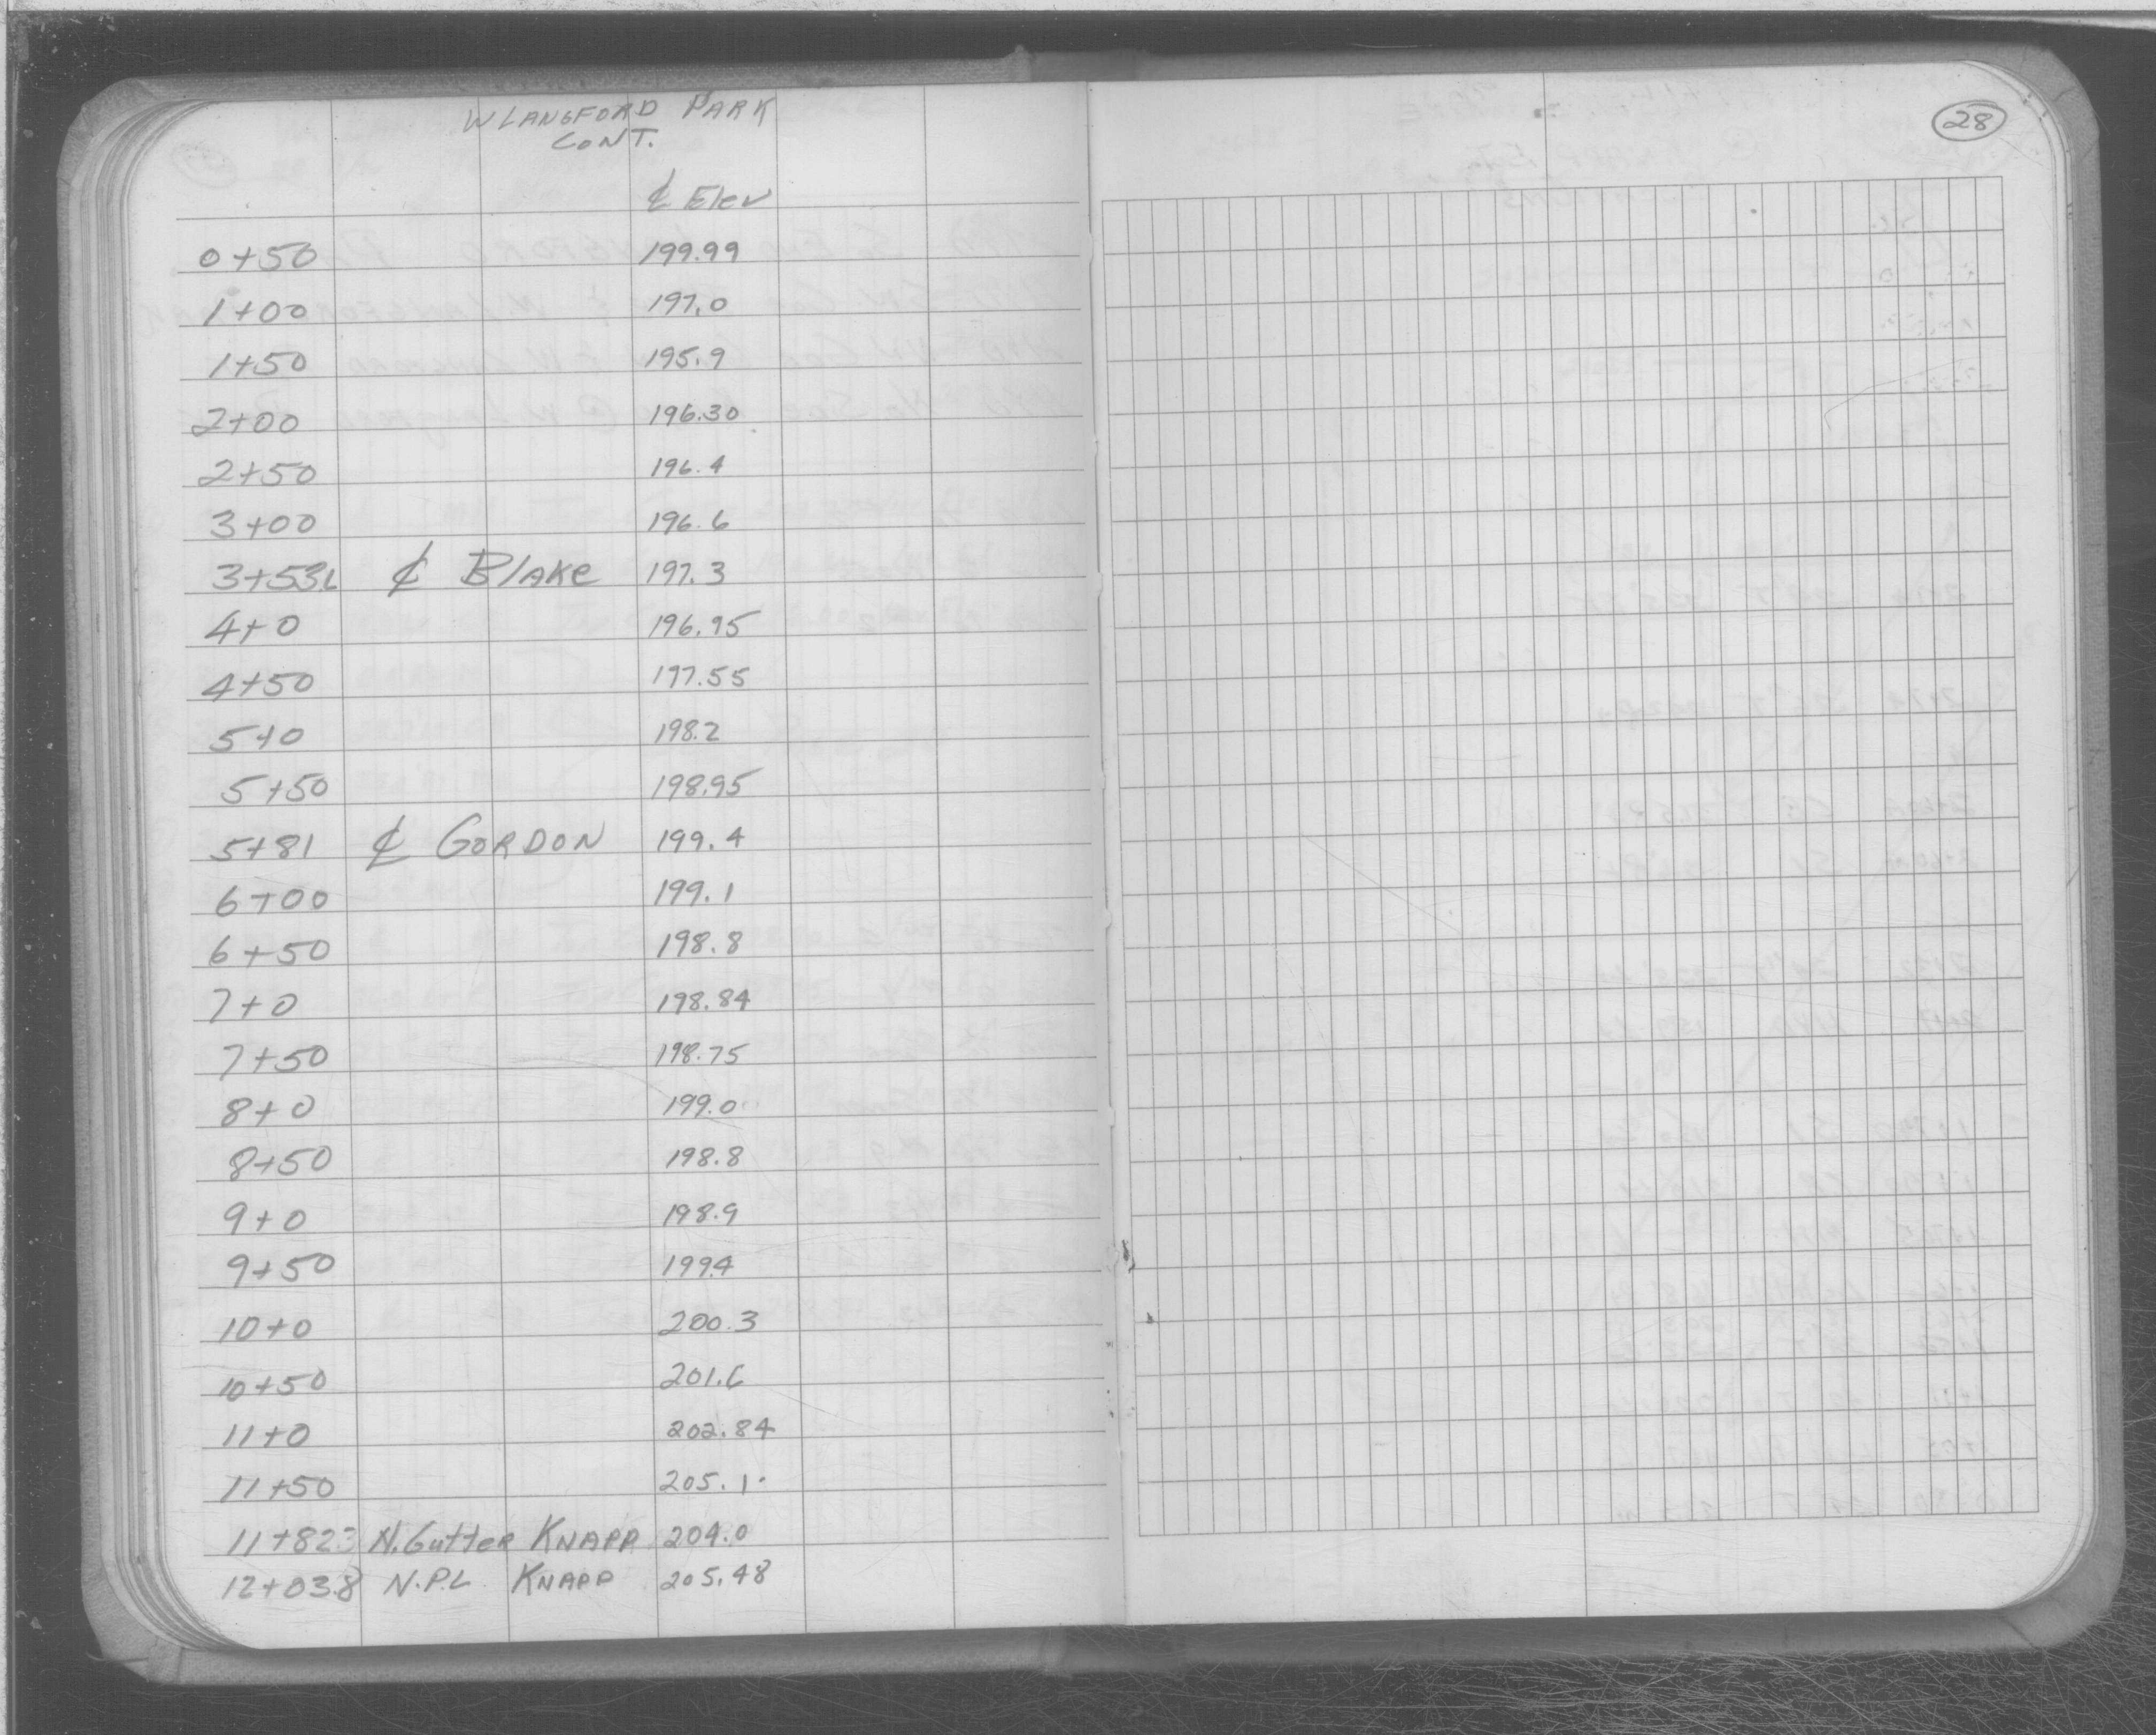 W LANGFORD PARK
CONT.
28
℄ Elev
0+50 199.99
1+00 197.0
1+50 195.9
2+00 196.30
2+50 196.4
3+00 196.6
3+53.6 ℄ Blake 197.3
4+0 196.95
4+50 197.55
5+0 198.2
5+50 198.95
5+81 ℄ GORDON 199.4
6+00 199.1
6+50 198.8
7+0 198.84
7+50 198.75
8+0 199.0
8+50 198.8
9+0 198.9
9+50 199.4
10+0 200.3
10+50 201.6
11+0 202.84
11+50 205.1
11+823 N. Gutter KNAPP 204.0
12+03.8 N.P.L KNAPP 205.48